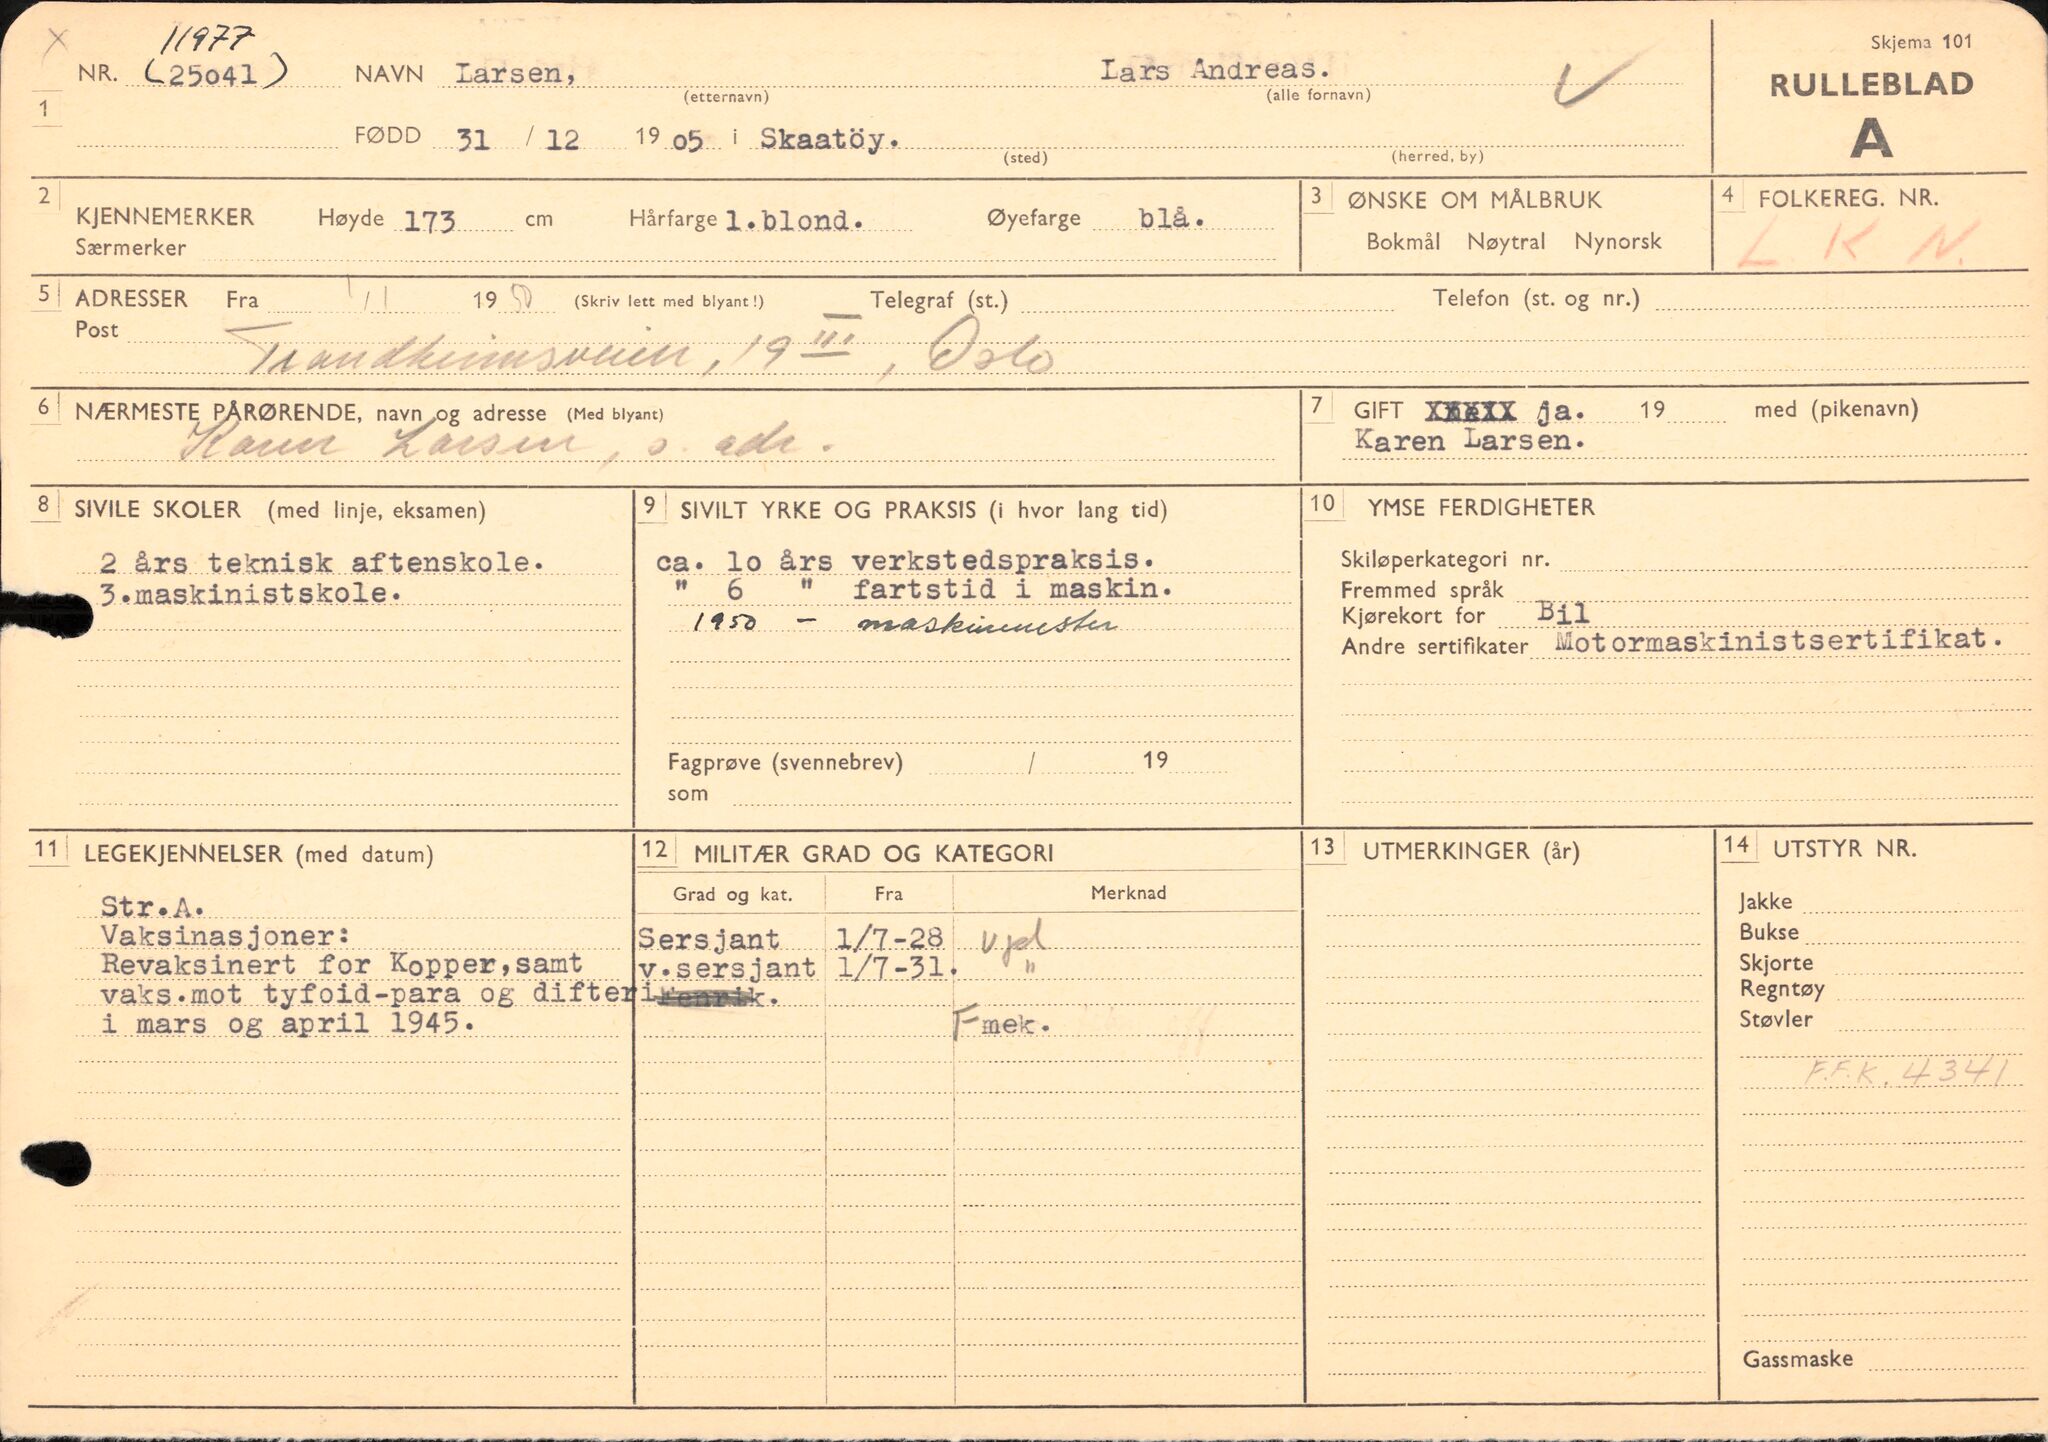 X
11977
Skjema 101
NR. (25041) NAVN Larsen, Lars Andreas. V
(etternavn) (alle fornavn)
RULLEBLAD
A
1
FØDD 31 / 12 19 05 i Skaatöy.
(sted) (herred, by)
2 KJENNEMERKER Høyde 173 cm Hårfarge l.blond. Øyefarge blå.
Særmerker
3 ØNSKE OM MÅLBRUK
Bokmål Nøytral Nynorsk
4 FOLKEREG. NR.
L. K. N.
5 ADRESSER Fra 1/1 19 50 (Skriv lett med blyant!) Telegraf (st.) Telefon (st. og nr.)
Post
Trondheimsveien, 19 III, Oslo
6 NÆRMESTE PÅRØRENDE, navn og adresse (Med blyant)
Karen Larsen, s. adr.
7 GIFT XXXXX ja. 19 med (pikenavn)
Karen Larsen.
8 SIVILE SKOLER (med linje, eksamen)
2 års teknisk aftenskole.
3.maskinistskole.
9 SIVILT YRKE OG PRAKSIS (i hvor lang tid)
ca. lo års verkstedspraksis.
" 6 " fartstid i maskin.
1950 - maskinmester
Fagprøve (svennebrev) / 19
som
10 YMSE FERDIGHETER
Skiløperkategori nr.
Fremmed språk
Kjørekort for Bil
Andre sertifikater Motormaskinistsertifikat.
11 LEGEKJENNELSER (med datum)
Str.A.
Vaksinasjoner:
Revaksinert for Kopper,samt
vaks.mot tyfoid-para og difteri
i mars og april 1945.
12 MILITÆR GRAD OG KATEGORI
Grad og kat. Fra Merknad
Sersjant 1/7-28 vpl
v.sersjant 1/7-31. "
fenrik.
F mek.
13 UTMERKINGER (år)
14 UTSTYR NR.
Jakke
Bukse
Skjorte
Regntøy
Støvler
F.F.K. 4341
Gassmaske